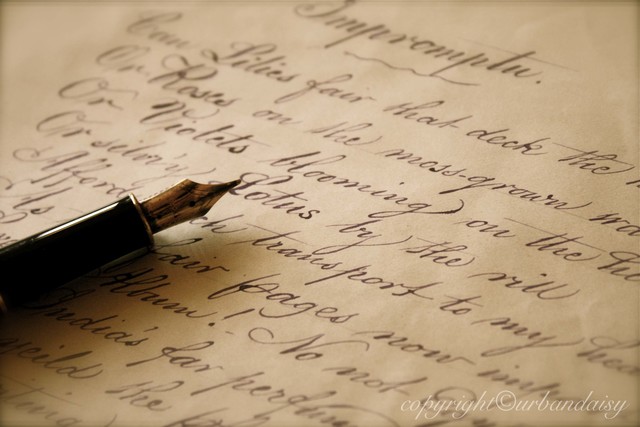 Impromptu.
Can Lilies fair that deck the
Or Roses on the moss-grown
Or Violets blooming on the
Or silv'ry Lotus by the rill
Afford such transport to my
As fair pages now
Album! No not
India's far
the
copyright©urbandaisy